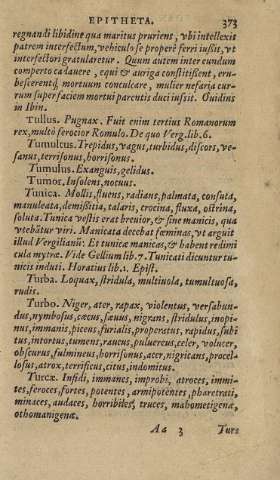 EPITHETA. 373
regnandi libidine qua maritus pruriens, vbi intellexit
patrem interfectum, vehiculo se properè ferri iussit, vt
interfectori gratularetur. Quum autem inter eundum
comperto cadauere, equi & auriga constitissent, eru-
bescerentq́; mortuum conculcare, mulier nefaria cur-
rum super faciem mortui parentis duci iussit. Ouidius
in Ibin.
Tullus. Pugnax. Fuit enim tertius Romanorum
rex, multò ferocior Romulo. De quo Verg. lib. 6.
Tumultus. Trepidus, vagus, turbidus, discors, ve-
sanus, terrisonus, horrisonus.
Tumulus. Exanguis, gelidus.
Tumor. Insolens, nocuus.
Tunica. Mollis, fluens, radians, palmata, consuta,
manuleata, demissitia, talaris, crocina, fluxa, ostrina,
soluta. Tunica vestis erat breuior, & sine manicis, qua
vtebātur viri. Manicata decebat fœminas, vt arguit
illud Vergilianū: Et tunicæ manicas, & habent redimi
cula mytræ. Vide Gellium lib. 7. Tunicati dicuntur tu-
nicis induti. Horatius lib. 1. Epist.
Turba. Loquax, stridula, multiuola, tumultuosa,
rudis.
Turbo. Niger, ater, rapax, violentus, versabun-
dus, nymbosus, cæcus, sæuus, nigrans, stridulus, inopi-
nus, immanis, piceus, furialis, properatus, rapidus, subi
tus, intortus, tumens, raucus, puluereus, celer, volucer,
obscurus, fulmineus, horrisonus, acer, nigricans, procel-
losus, atrox, terrificus, citus, indomitus.
Turcæ. Infidi, immanes, improbi, atroces, immi-
tes, feroces, fortes, potentes, armipotentes, pharetrati,
minaces, audaces, horribiles, truces, mahometigenæ,
othomanigenæ.
Aa 3 Turs